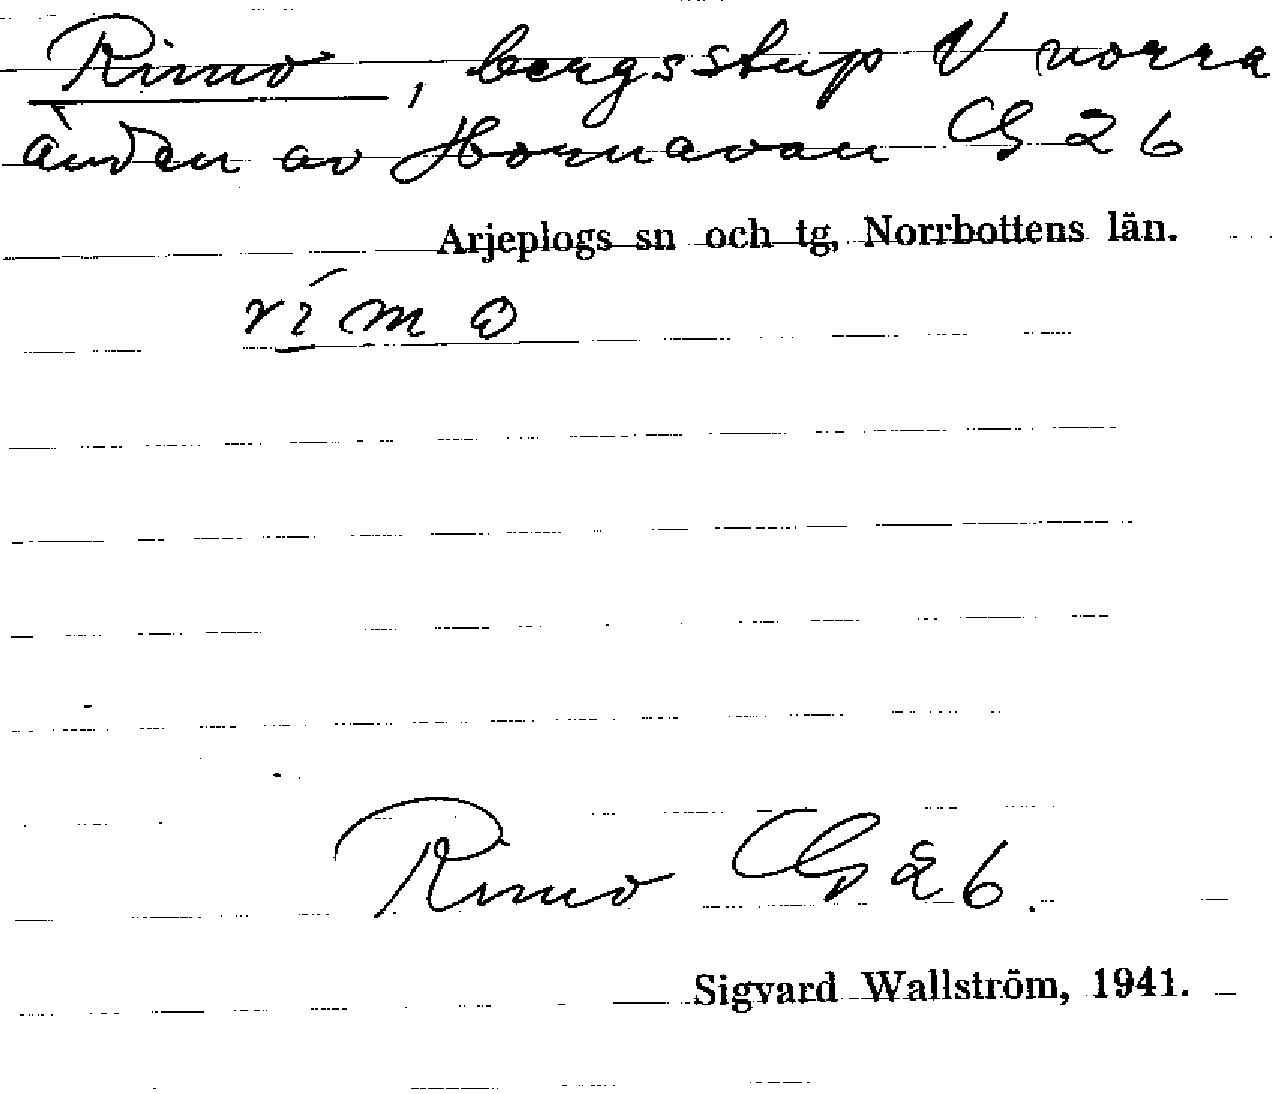 Rimo, bergsstup V norra
änden av Hornavan CG 26
Arjeplogs sn och tg, Norrbottens län.
rímo
Rimo CG 26.
Sigvard Wallström, 1941.